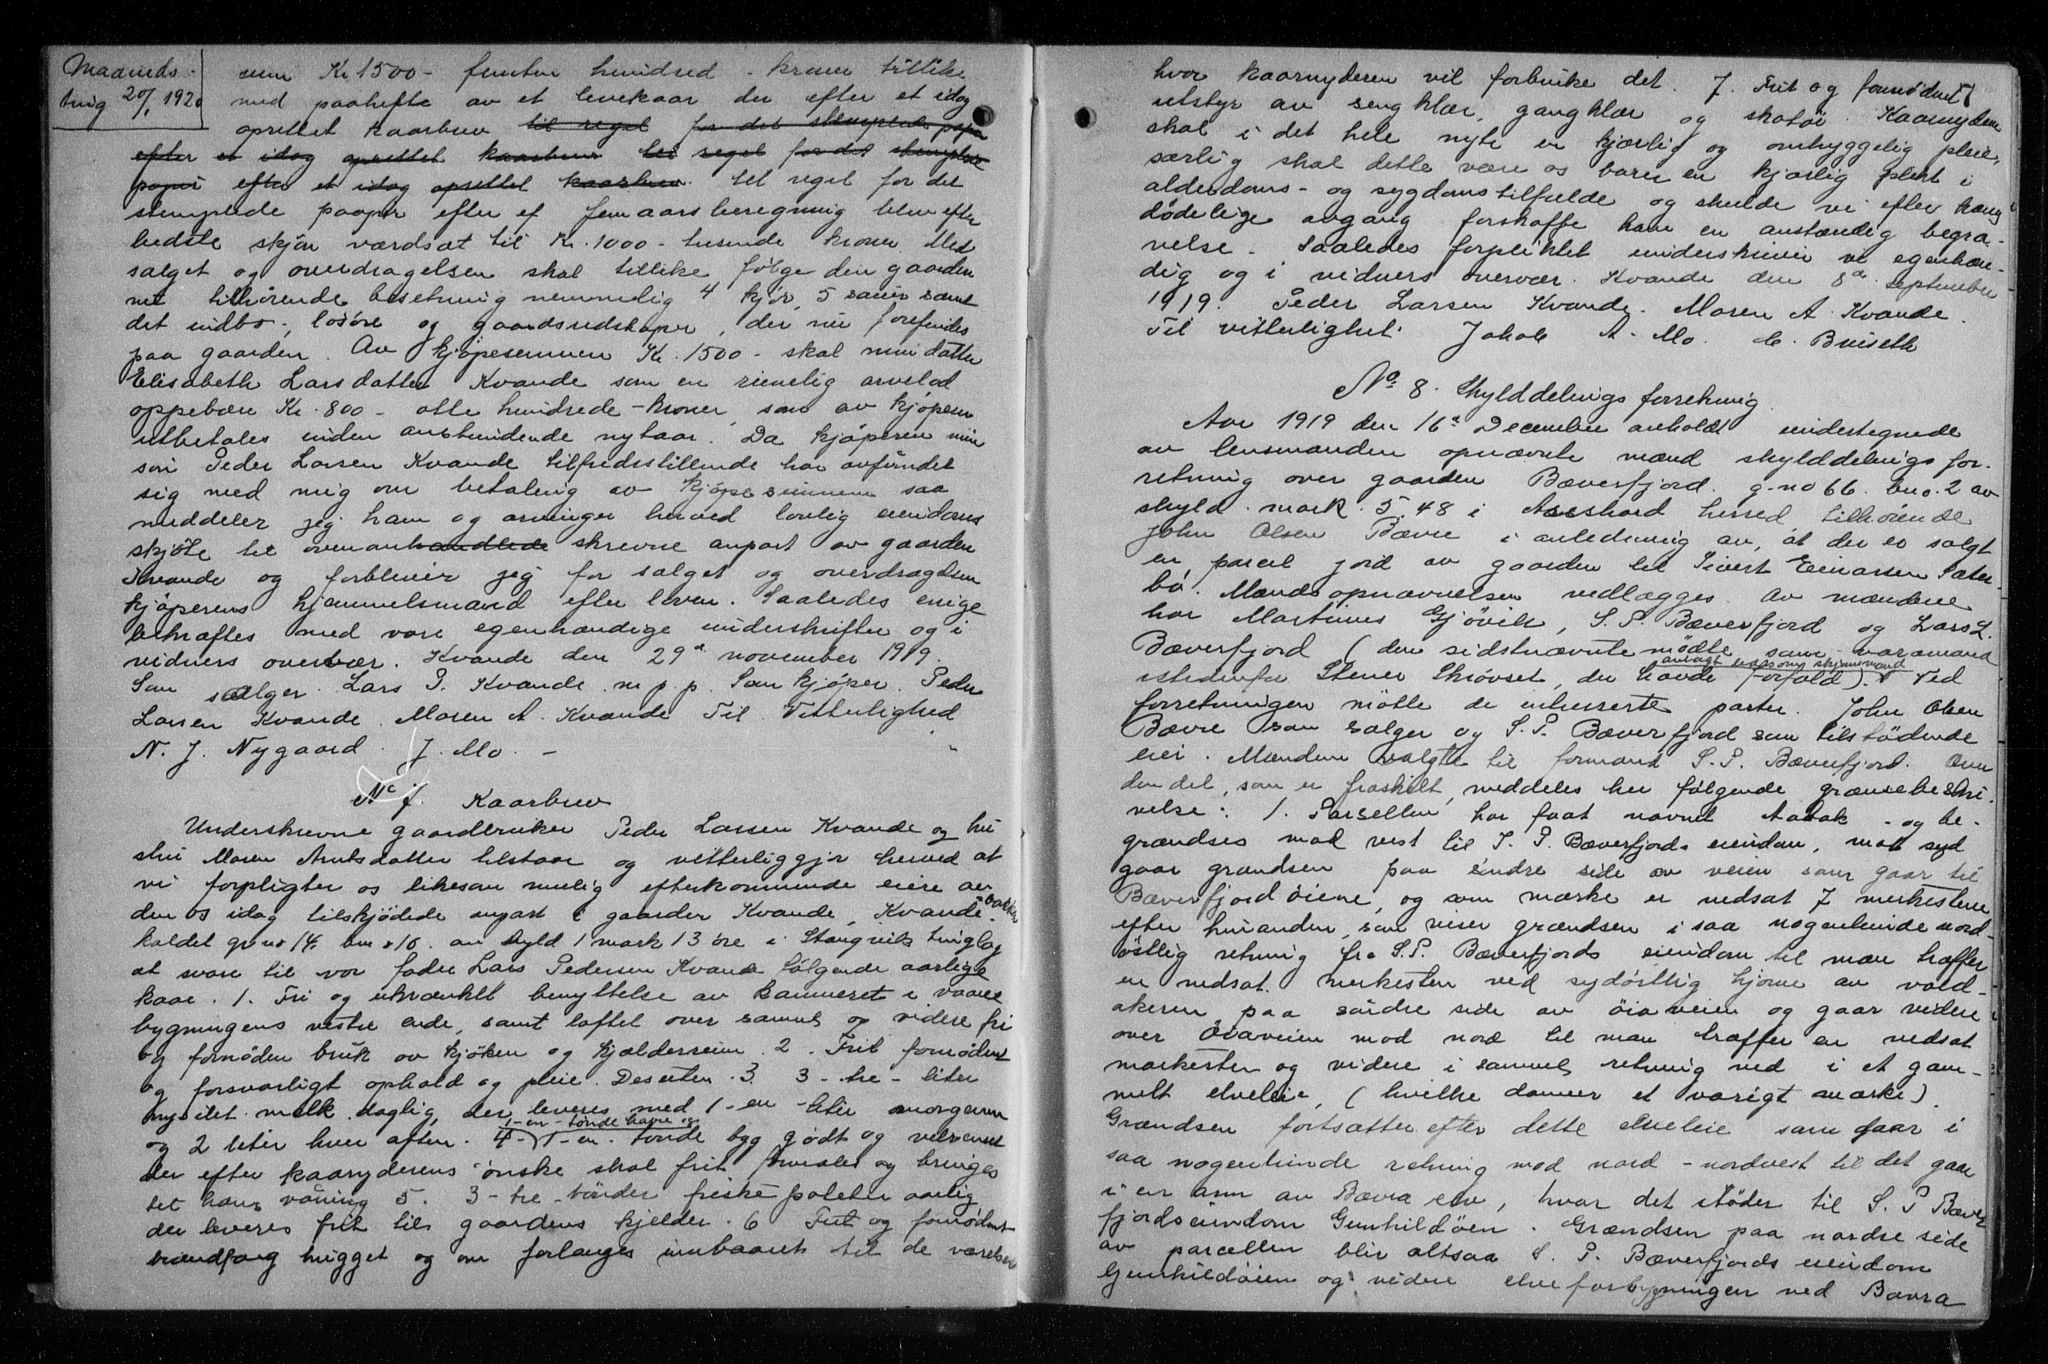 Maaneds-
ting 20/1 1920
sum Kr 1500 - femten hundred - kroner tillike
med paahefte av et levekaar der efter et idag
oprettet kaarbrev til regel for det stemplede papir
efter et idag oprettet kaarbrev til regel for det stemplede
papir efter et idag oprettet kaarbrev til regel for det
stemplede papir efter et femaarsberegning blev efter
bedste skjøn værdsat til Kr. 1000 - tusende kroner Med
salget og overdragelsen skal tillike følge den gaarden
nu tilhørende besetning nemmelig 4 kjør, 5 sauer samt
det indbo-, losøre og gaardsredskaper, der nu forefindes
paa gaarden. Av kjøpesummen Kr. 1500 - skal min datter
Elisabeth Larsdatter Kvande som en rimelig arvelod
oppebære Kr. 800 - otte hundrede - kroner, som av kjøperen
utbetales inden anstundende nytaar. Da kjøperen min
søn Peder Larsen Kvande tilfredsstillende har avfundet
sig med mig om betaling av kjøpesummen saa
meddeler jeg ham og arvinger herved lovlig eiendoms
skjøte til ovenanhandlede skrevne anpart av gaarden
Kvande og forbliver jeg for salget og overdragelsen
kjøperens hjemmelsmand efter loven. Saaledes enige
bekræftes med vore egenhændige underskrifter og i
vidners overvær. Kvande den 29de november 1919.
Som sælger. Lars P. Kvande m. p. p. Som kjøper. Peder
Larsen Kvande. Maren A. Kvande Til Vitterlighed
N. J. Nygaard. J. Mo. -
No 7. Kaarbrev
Underskrevne gaardbruker Peder Larsen Kvande og hu
stru Maren Arntsdatter tilstaar og vitterliggjør herved at
vi forpligter os likesom mulig efterkommende eiere av
den os idag tilskjødede anpart i gaarden Kvande, Kvande-bakken
kaldet gr no 14. bno 10. av skyld 1 mark 13 øre i Stangvik tinglag
at svare til vor fader Lars Pedersen Kvande følgende aarlige
kaar. 1. Fri og ukrænket benyttelse av kammeret i vaare
bygningens vestre ende, samt loftet over samme og videre fri
og fornøden bruk av kjøken og kjælderrum. 2. Frit fornødent
og forsvarligt ophold og pleie. Desuten 3. 3 - tre - liter
nysilet melk daglig, der leveres med 1 - en - liter morgenen
og 2 liter hver aften. 4 - 1-en-tønde havre og 1 - en - tønde byg godt og velrenset
der efter kaarnyderens ønske skal frit formales og bringes
til hans vaaning 5. 3 - tre - tønder friske poteter aarlig
der leveres frit til gaardens kjelder. 6 Frit og fornødent
brændfang hugget og om forlanges innbaaret til de værelser
hvor kaarnyderen vil forbruke det. 7. Frit og fornødent
utstyr av sengklær, gangklær og skotøi. Kaarnyderen
skal i det hele nyte en kjærlig og omhyggelig pleie,
særlig skal dette være os baren en kjærlig plikt i
alderdoms- og sygdomstilfælde og skulde vi efter hans
dødelige avgang forskaffe ham en anstændig begra-
velse. Saaledes forpliktet underskriver vi egenhæn-
dig og i vidners overvær. Kvande den 8de september
1919. Peder Larsen Kvande. Maren A. Kvande.
Til vitterlighet. Jakob A. Mo. C. Bruseth
No 8. Skylddelings forretning.
Aar 1919 den 16de December avholdt undertegnede
av lensmanden opnævnte mænd skylddelings for-
retning over gaarden Bæverfjord. g-no 66. bno. 2 av
skyld. mark. 5.48 i Aasskard herred, tilhørende
John Olsen Bævre i anledning av, at der er solgt
en parcel jord av gaarden til Sivert Einarsen Sæter
bø. Mændsopnævnelsen vedlægges. Av mændene
har Martinus Gjøvik, S. P. Bæverfjord og Lars L.
Bæverfjord (den sidstnævnte mødte som varamand
istedenfor Stener Skrøvset, der havde forfald). Ved
avlagt ed som skjønsmand
forretningen møtte de interesserte parter. John Olsen
Bævre som sælger og S. P. Bæverfjord som tilstødende
eier. Mændene valgte til formand S. P. Bæverfjord. Over
den del, som er fraskilt, meddeles her følgende grænsebeskri-
velse: 1. Parsellen har faat navnet - og be-
grændses mod vest til S. P. Bæverfjords eiendom, mot syd
gaar grændsen paa søndre side av veien som gaar til
Bæverfjordøiene, og som mærke er nedsat 7 merkestene
efter hinanden, som viser grændsen i saa nogenlunde nord-
østlig retning fra S. P. Bæverfjords eiendom til man træffer
en nedsat merkesten ved sydøstlig hjørne av vold-
akeren paa søndre side av øiaveien og gaar videre
over Øiaveien mod nord til man træffer en nedsat
merkesten og videre i samme retning ned i et gam-
melt elveleie, (hvilke danner et varigt mærke).
Grændsen fortsætter efter dette elveleie som gaar i
saa nogenlunde retning mod nord - nordvest til det gaar
i en arm av Bævra elv, hvor det støder til S. P Bæver
fjords eiendom Gunhildøen. Grændsen paa nordre side
av parcellen blir altsaa S. P. Bæverfjords eiendom
Gunhildøien og videre elveforbygningen ved Bævra